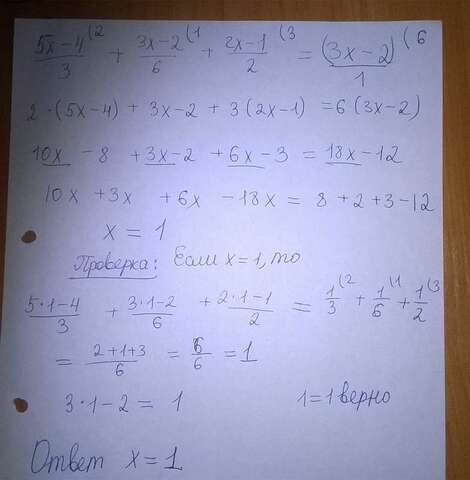 (5x-4)/3 ⁽² + (3x-2)/6 ⁽¹ + (2x-1)/2 ⁽³ = (3x-2)/1 ⁽⁶
2·(5x-4) + 3x-2 + 3(2x-1) = 6(3x-2)
10x - 8 + 3x-2 + 6x-3 = 18x-12
10x + 3x + 6x - 18x = 8 + 2 + 3 - 12
x = 1
Проверка: Если x = 1, то
(5·1-4)/3 + (3·1-2)/6 + (2·1-1)/2 = 1/3 ⁽² + 1/6 ⁽¹ + 1/2 ⁽³
= (2+1+3)/6 = 6/6 = 1
3·1-2 = 1 1=1 верно
Ответ x=1